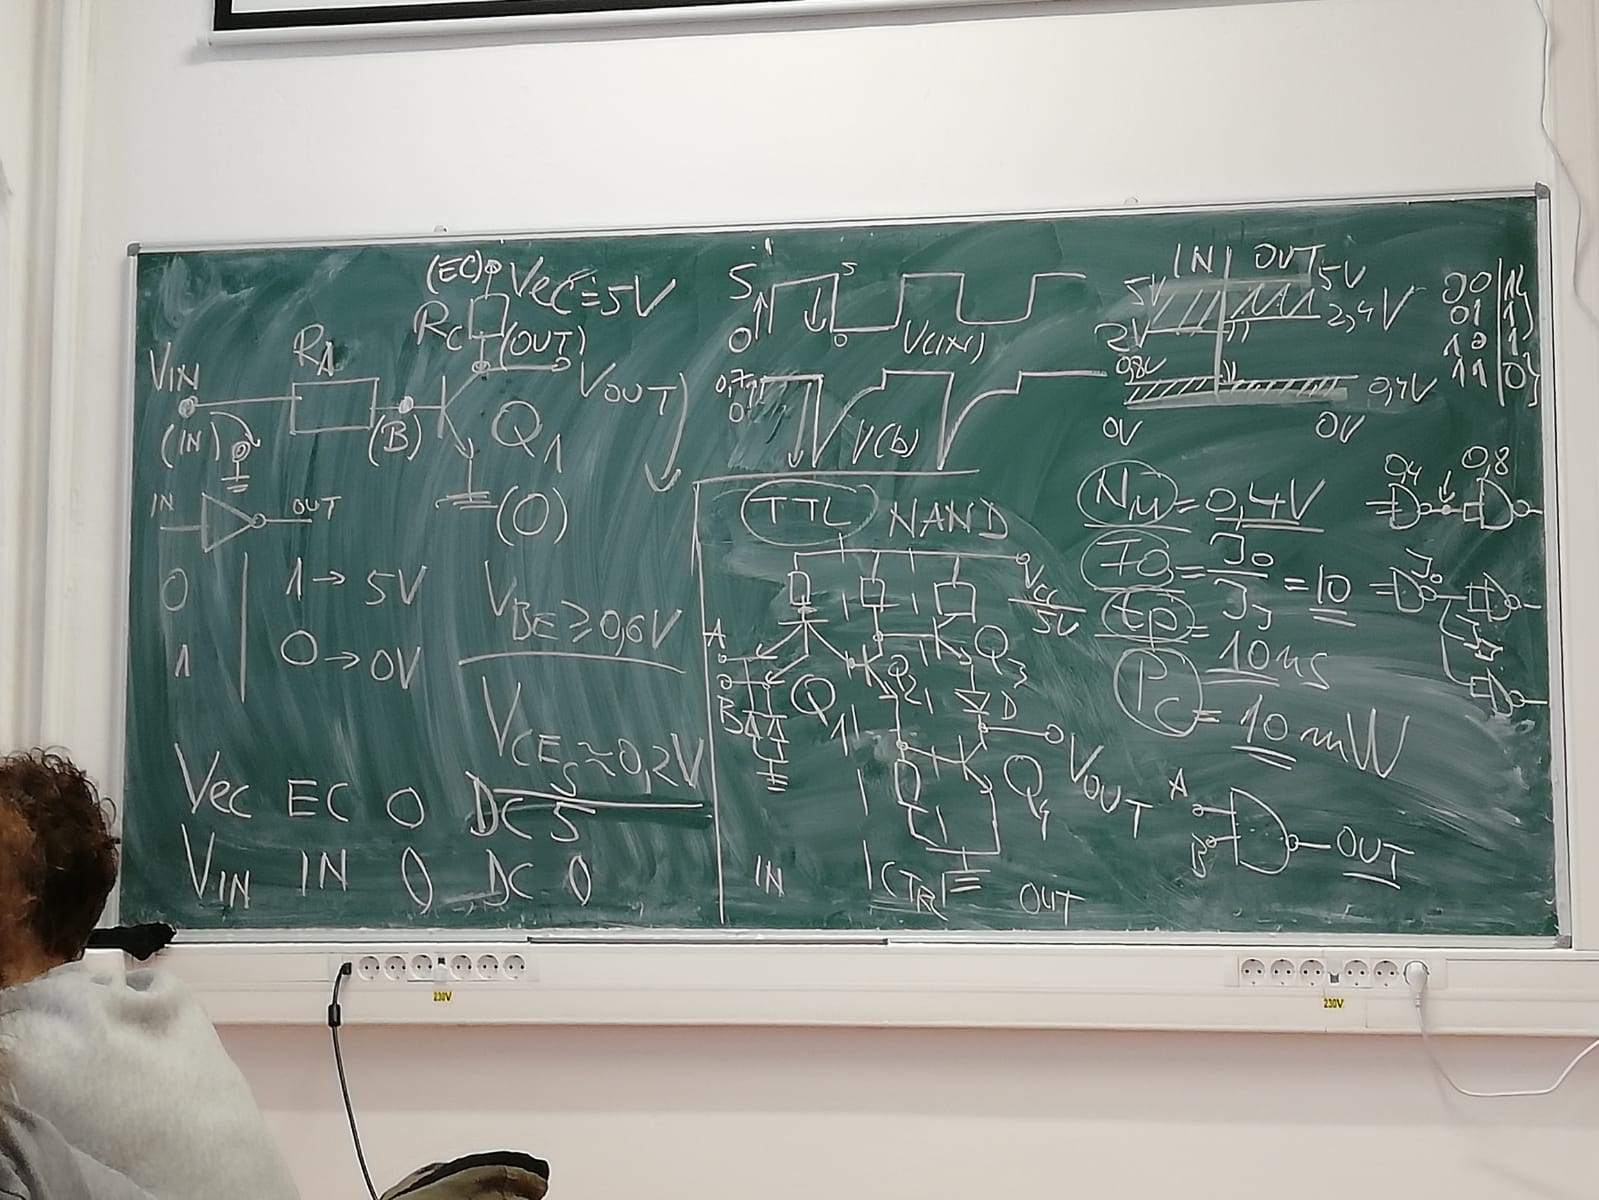 (EC) VEC=5V
RC
(OUT)
VIN
R1
VOUT
(IN)
(B)
Q1
(0)
IN
OUT
0 1→5V
1 0→0V
VBE≥0,6V
VCES≈0,2V
VEC EC 0 DC 5
VIN IN 0 DC 0
5
5
0
0
V(IN)
0,7
0
V(b)
TTL NAND
VCC
5V
A
B
Q1
Q2
Q3
D
Q4
VOUT
IN
CTRL
OUT
IN OUT
5V 5V
2V 2,4V
0,8V 0,4V
0V 0V
00 1
01 1
10 1
11 0
NM=0,4V
0,4 0,8
=10
tp=10ns
Pc=10mW
A
B
OUT
230V
230V